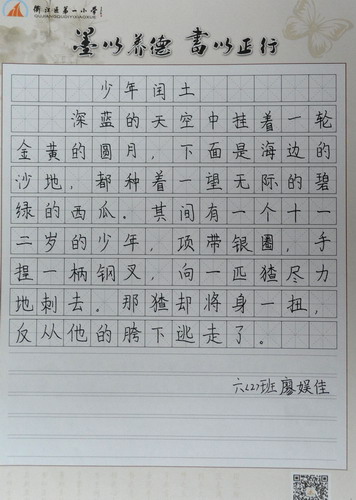 衢江区第一小学
墨以养德 書以正行
少年闰土
深蓝的天空中挂着一轮
金黄的圆月，下面是海边的
沙地，都种着一望无际的碧
绿的西瓜。其间有一个十一
二岁的少年，项带银圈，手
捏一柄钢叉，向一匹猹尽力
地刺去。那猹却将身一扭，
反从他的胯下逃走了。
六(2)班 廖娱佳